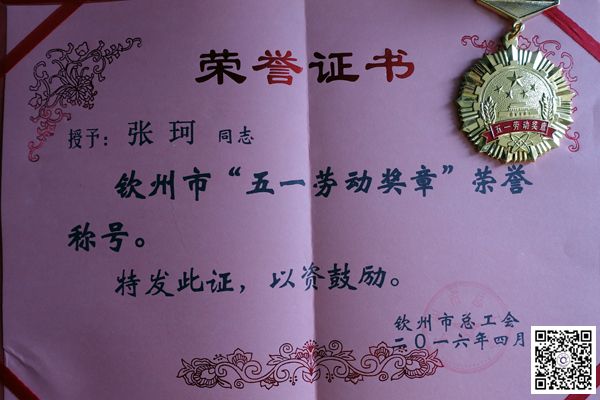 荣誉证书
五一劳动奖章
授予：张珂 同志
钦州市“五一劳动奖章”荣誉
称号。
特发此证，以资鼓励。
钦州市总工会
二〇一六年四月